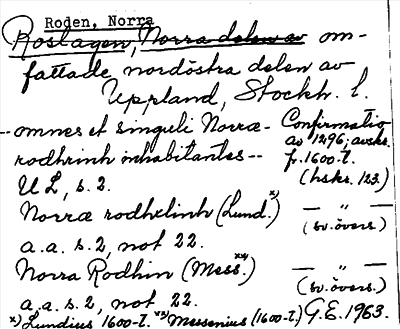 Roden, Norra
Roslagen, Norra delen av om-
fattade nordöstra delen av
Uppland, Stockh. l.
--omnes et singuli Norræ- Confirmatio
rodhrinh inhabitantes-- av 1296; avskr.
f. 1600-t.
UL, s. 2. (hskr. 123)
Norræ rodhelinh (Lund.x)) — „ —
a.a. s. 2, not 22. (sv. övers.)
Norra Rodhin (Mess.xx)) — „ —
a.a. s. 2, not 22. (sv. övers.)
x) Lundius 1600-t. xx) Messenius (1600-t.) G.E. 1963.